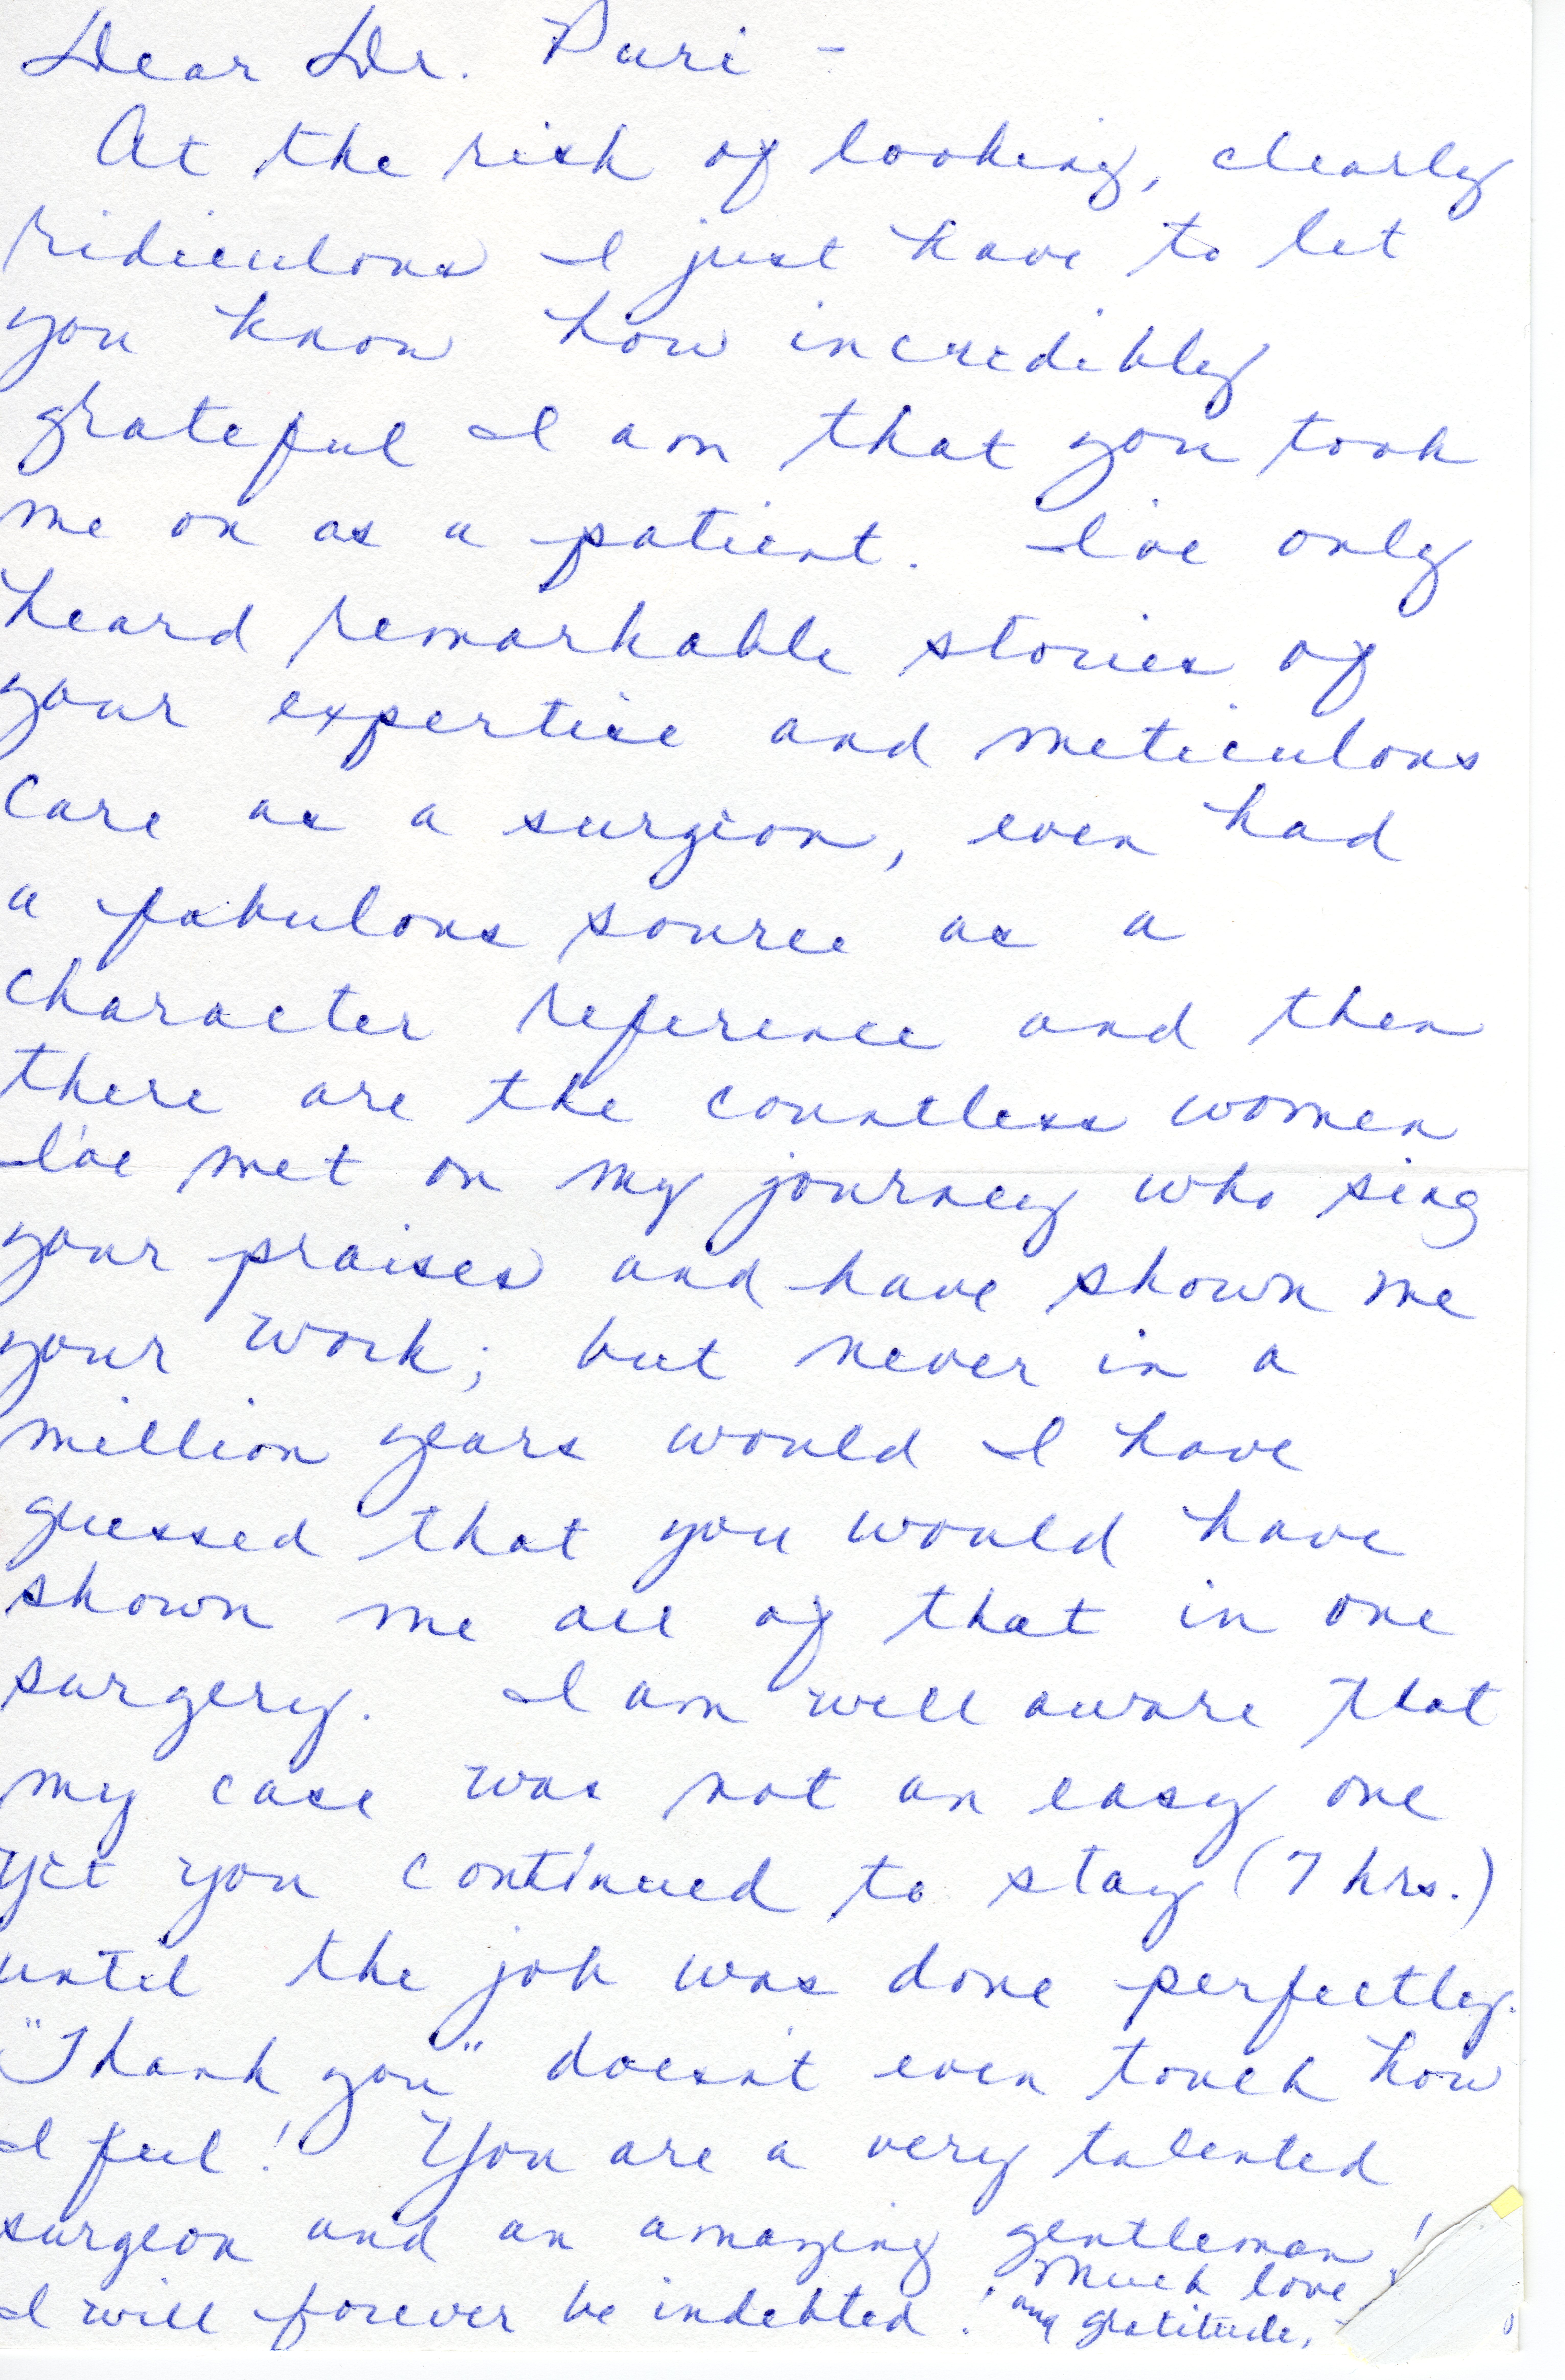 Dear Dr. Puri -
At the risk of looking, clearly
ridiculous I just have to let
you know how incredibly
grateful I am that you took
me on as a patient. I've only
heard remarkable stories of
your expertise and meticulous
care as a surgeon, even had
a fabulous source as a
character reference and then
there are the countless women
I've met on my journey who sing
your praises and have shown me
your work; but never in a
million years would I have
guessed that you would have
shown me all of that in one
surgery. I am well aware that
my case was not an easy one
yet you continued to stay (7 hrs.)
until the job was done perfectly.
"Thank you" doesn't even touch how
I feel! You are a very talented
surgeon and an amazing gentleman!
I will forever be indebted!
Much love
and gratitude,